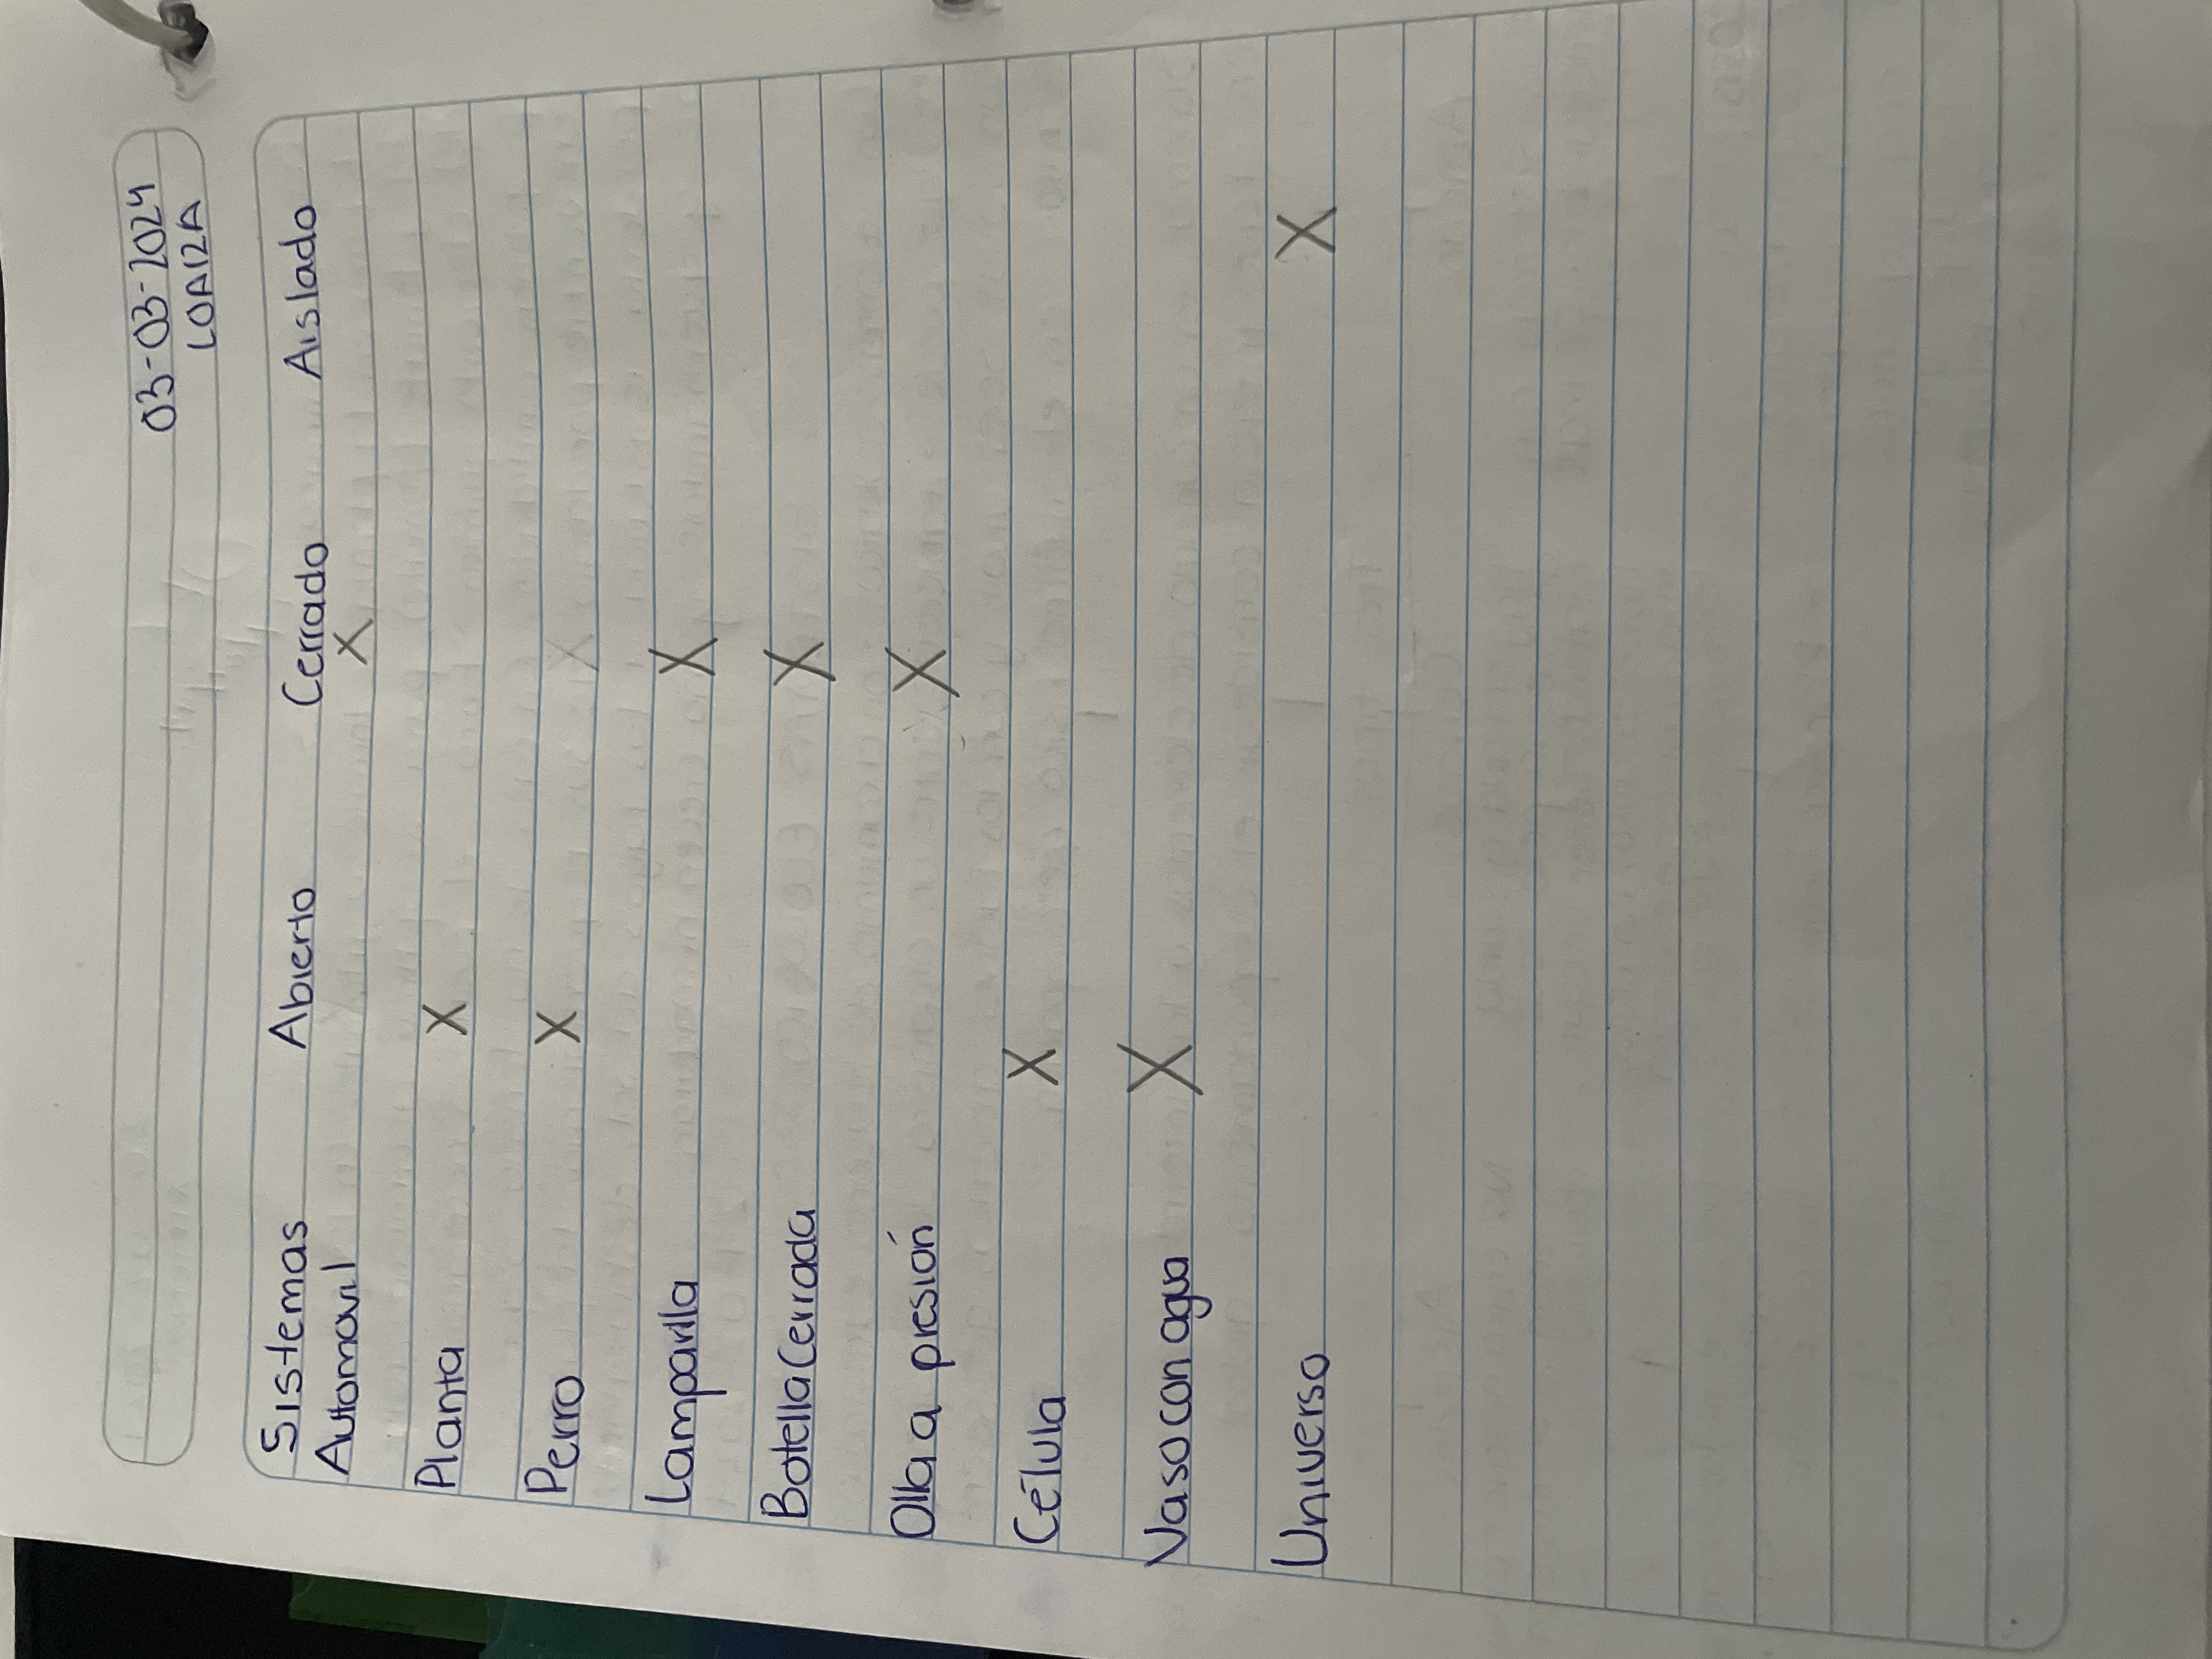 03-03-2024
LOAIZA
Sistemas Abierto Cerrado Aislado
Automovil X
Planta X
Perro X
Lamparilla X
Botella Cerrada X
Olla a presión X
Célula X
Vaso con agua X
Universo X